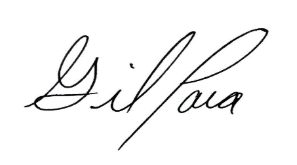 Gil Para